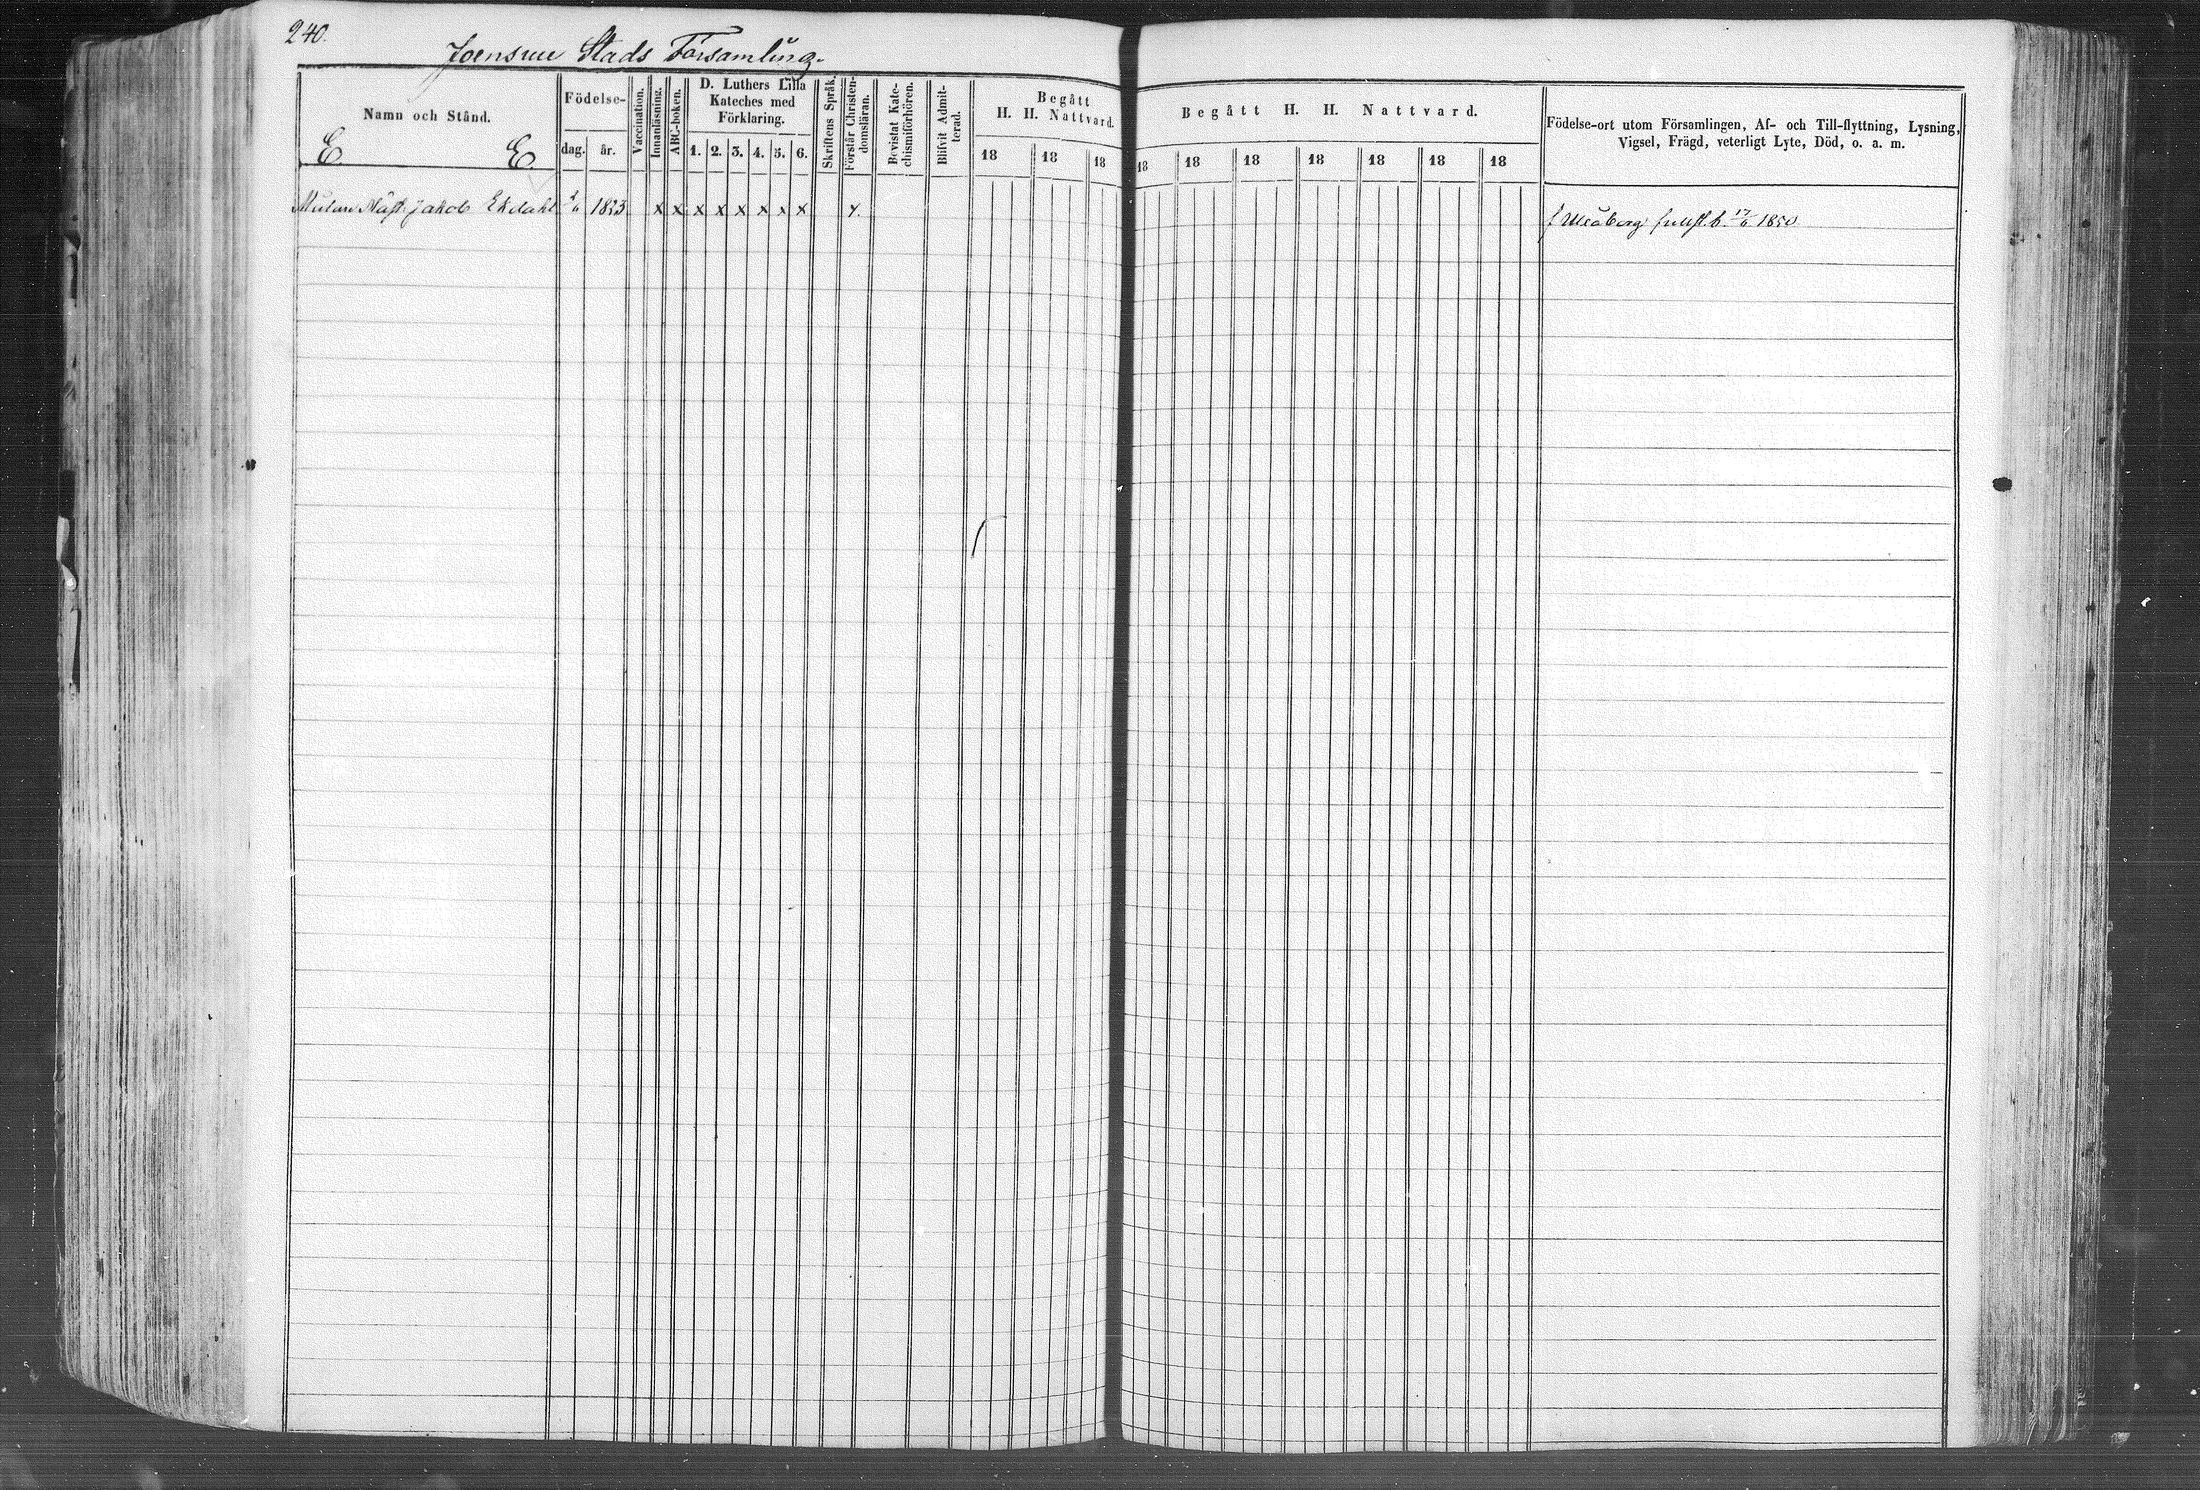 240.
Joensuu Stads Församling.
Namn och Stånd.
E E
Födelse-
dag. år.
Vaccination.
Innanläsning.
ABC-boken.
D. Luthers Lilla
Kateches med
Förklaring.
1. 2. 3. 4. 5. 6.
Skriftens Språk.
Förstår Christen-
domsläran.
Bevistat Kate-
chismiförhören.
Blifvit Admit-
terad.
Begått
H. H. Nattvard.
18 18 18
Begått H. H. Nattvard.
18 18 18 18 18 18 18
Födelse-ort utom Församlingen, Af- och Till-flyttning, Lysning,
Vigsel, Frägd, veterligt Lyte, Död, o. a. m.
Jakob Ekdahl 1823 x x x x x x x x x.
f Uleåborg 17/6 1850